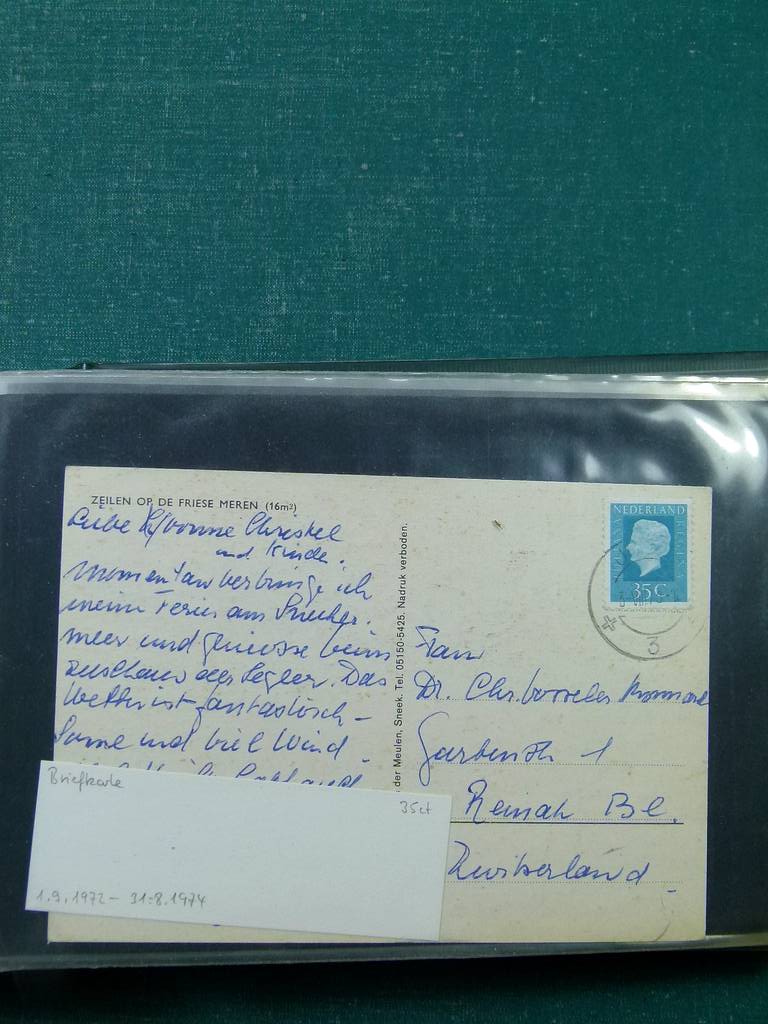 ZEILEN OP DE FRIESE MEREN (16m²)
Liebe Yvonne Christel
und Kinder.
Momentan verbringe ich
meine Ferien am Sneeker-
meer und geniesse beim
zuschauen der Segler. Das
Wetter ist fantastisch -
Sonne und viel Wind
der Meulen, Sneek. Tel. 05150-5425. Nadruk verboden.
NEDERLAND
35 C
3
Frau
Dr. Chr.
1
Reinach Bl.
Zwitserland
Briefkarte
35ct
1.9.1972 - 31.8.1974